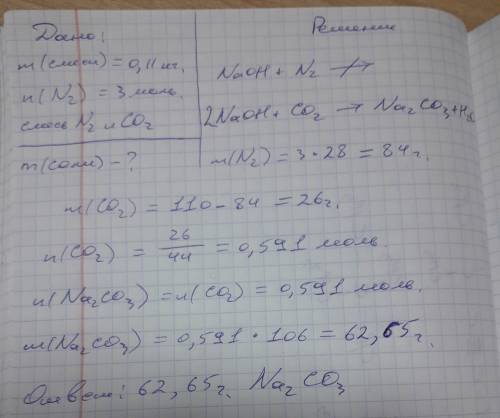 Дано:
m(смеси) = 0,11 кг.
n(N₂) = 3 моль.
смесь N₂ и CO₂
m(соли) - ?
Решение
NaOH + N₂ ↛
2NaOH + CO₂ → Na₂CO₃ + H₂O
m(N₂) = 3 · 28 = 84 г.
m(CO₂) = 110 - 84 = 26 г.
n(CO₂) = 26/44 = 0,591 моль.
n(Na₂CO₃) = n(CO₂) = 0,591 моль.
m(Na₂CO₃) = 0,591 · 106 = 62,65 г.
Ответ: 62,65 г. Na₂CO₃